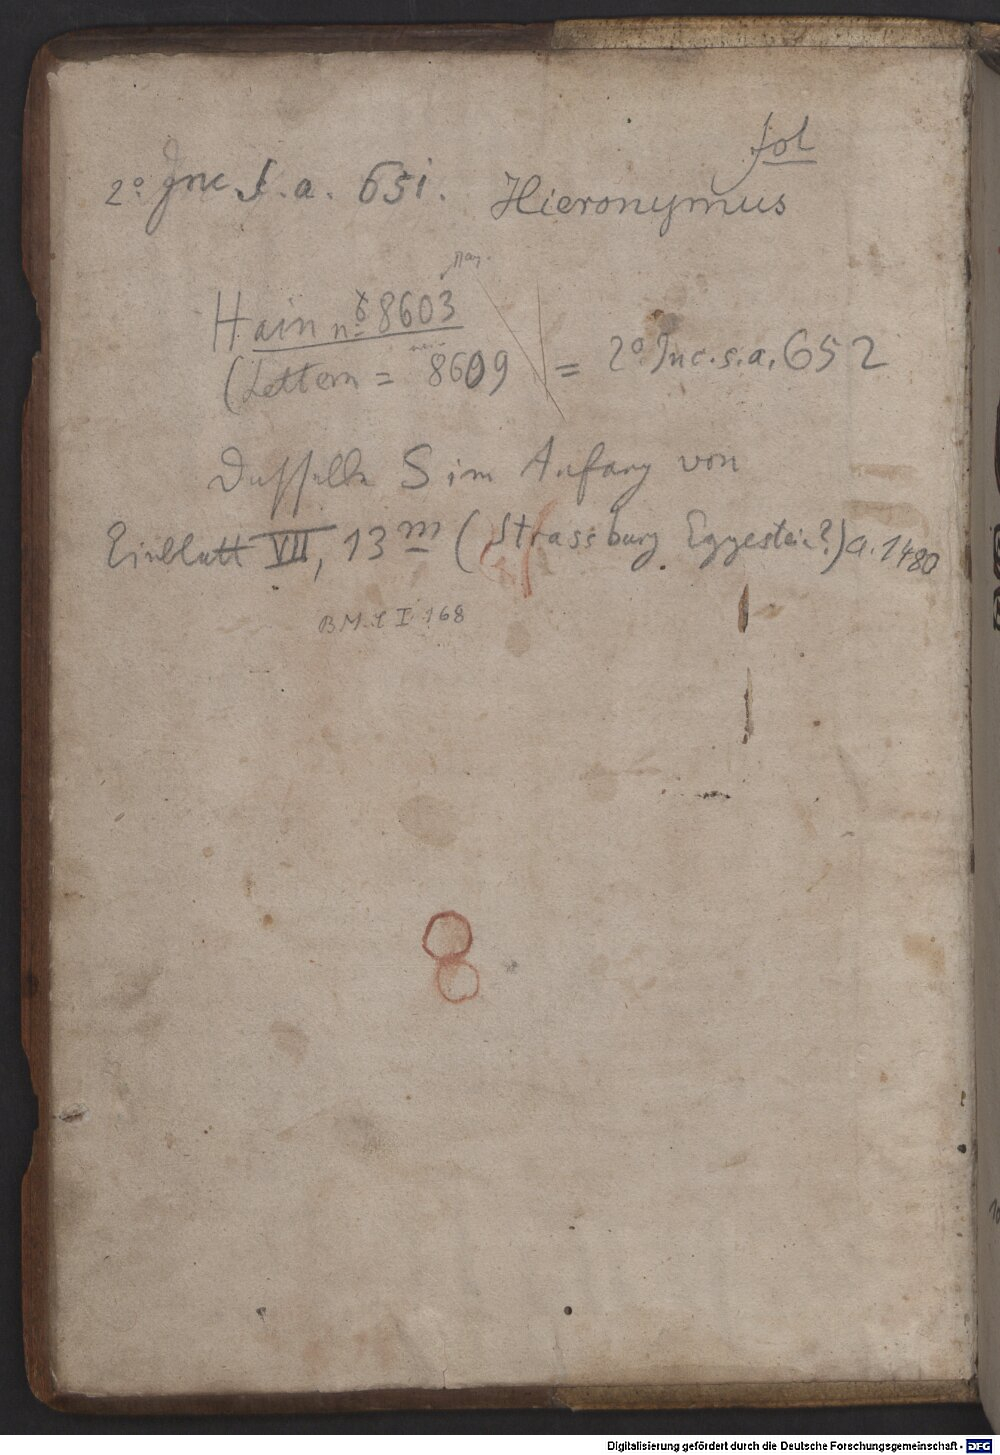 fol
2° Inc. s. a. 651. Hieronymus
Hain n° 8603
(Lettern = 8609 = 2° Inc. s. a. 652
Dasselbe S im Anfang von
Einblatt VII, 13 m (Strassburg Eggestein?) a. 1480
B M C I 168
8
Digitalisierung gefördert durch die Deutsche Forschungsgemeinschaft - DFG